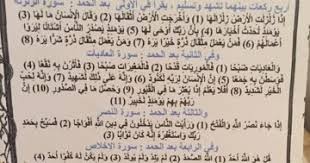 أربع ركعات بينهما تشهد وتسليم ، يقرأ في الأولى بعد الحمد : سورة الزلزلة
إِذَا زُلْزِلَتِ الْأَرْضُ زِلْزَالَهَا (1) وَأَخْرَجَتِ الْأَرْضُ أَثْقَالَهَا (2) وَقَالَ الْإِنْسَانُ مَا لَهَا (3)
يَوْمَئِذٍ تُحَدِّثُ أَخْبَارَهَا (4) بِأَنَّ رَبَّكَ أَوْحَى لَهَا (5) يَوْمَئِذٍ يَصْدُرُ النَّاسُ أَشْتَاتًا لِيُرَوْا
أَعْمَالَهُمْ (6) فَمَنْ يَعْمَلْ مِثْقَالَ ذَرَّةٍ خَيْرًا يَرَهُ (7) وَمَنْ يَعْمَلْ مِثْقَالَ ذَرَّةٍ شَرًّا يَرَهُ (8)
وفي الثانية بعد الحمد : سورة العاديات
فَوَسَطْنَ بِهِ جَمْعًا (5) إِنَّ الْإِنْسَانَ لِرَبِّهِ لَكَنُودٌ (6) وَإِنَّهُ عَلَى ذَلِكَ لَشَهِيدٌ (7) وَإِنَّهُ لِحُبِّ الْخَيْرِ
لَشَدِيدٌ (8) أَفَلَا يَعْلَمُ إِذَا بُعْثِرَ مَا فِي الْقُبُورِ (9) وَحُصِّلَ مَا فِي الصُّدُورِ (10) إِنَّ
رَبَّهُمْ بِهِمْ يَوْمَئِذٍ لَخَبِيرٌ (11)
والثالثة بعد الحمد : سورة النصر
إِذَا جَاءَ نَصْرُ اللَّهِ وَالْفَتْحُ (1) وَرَأَيْتَ النَّاسَ يَدْخُلُونَ فِي دِينِ اللَّهِ أَفْوَاجًا (2) فَسَبِّحْ بِحَمْدِ
رَبِّكَ وَاسْتَغْفِرْهُ إِنَّهُ كَانَ تَوَّابًا (3)
وفي الرابعة بعد الحمد : سورة الإخلاص